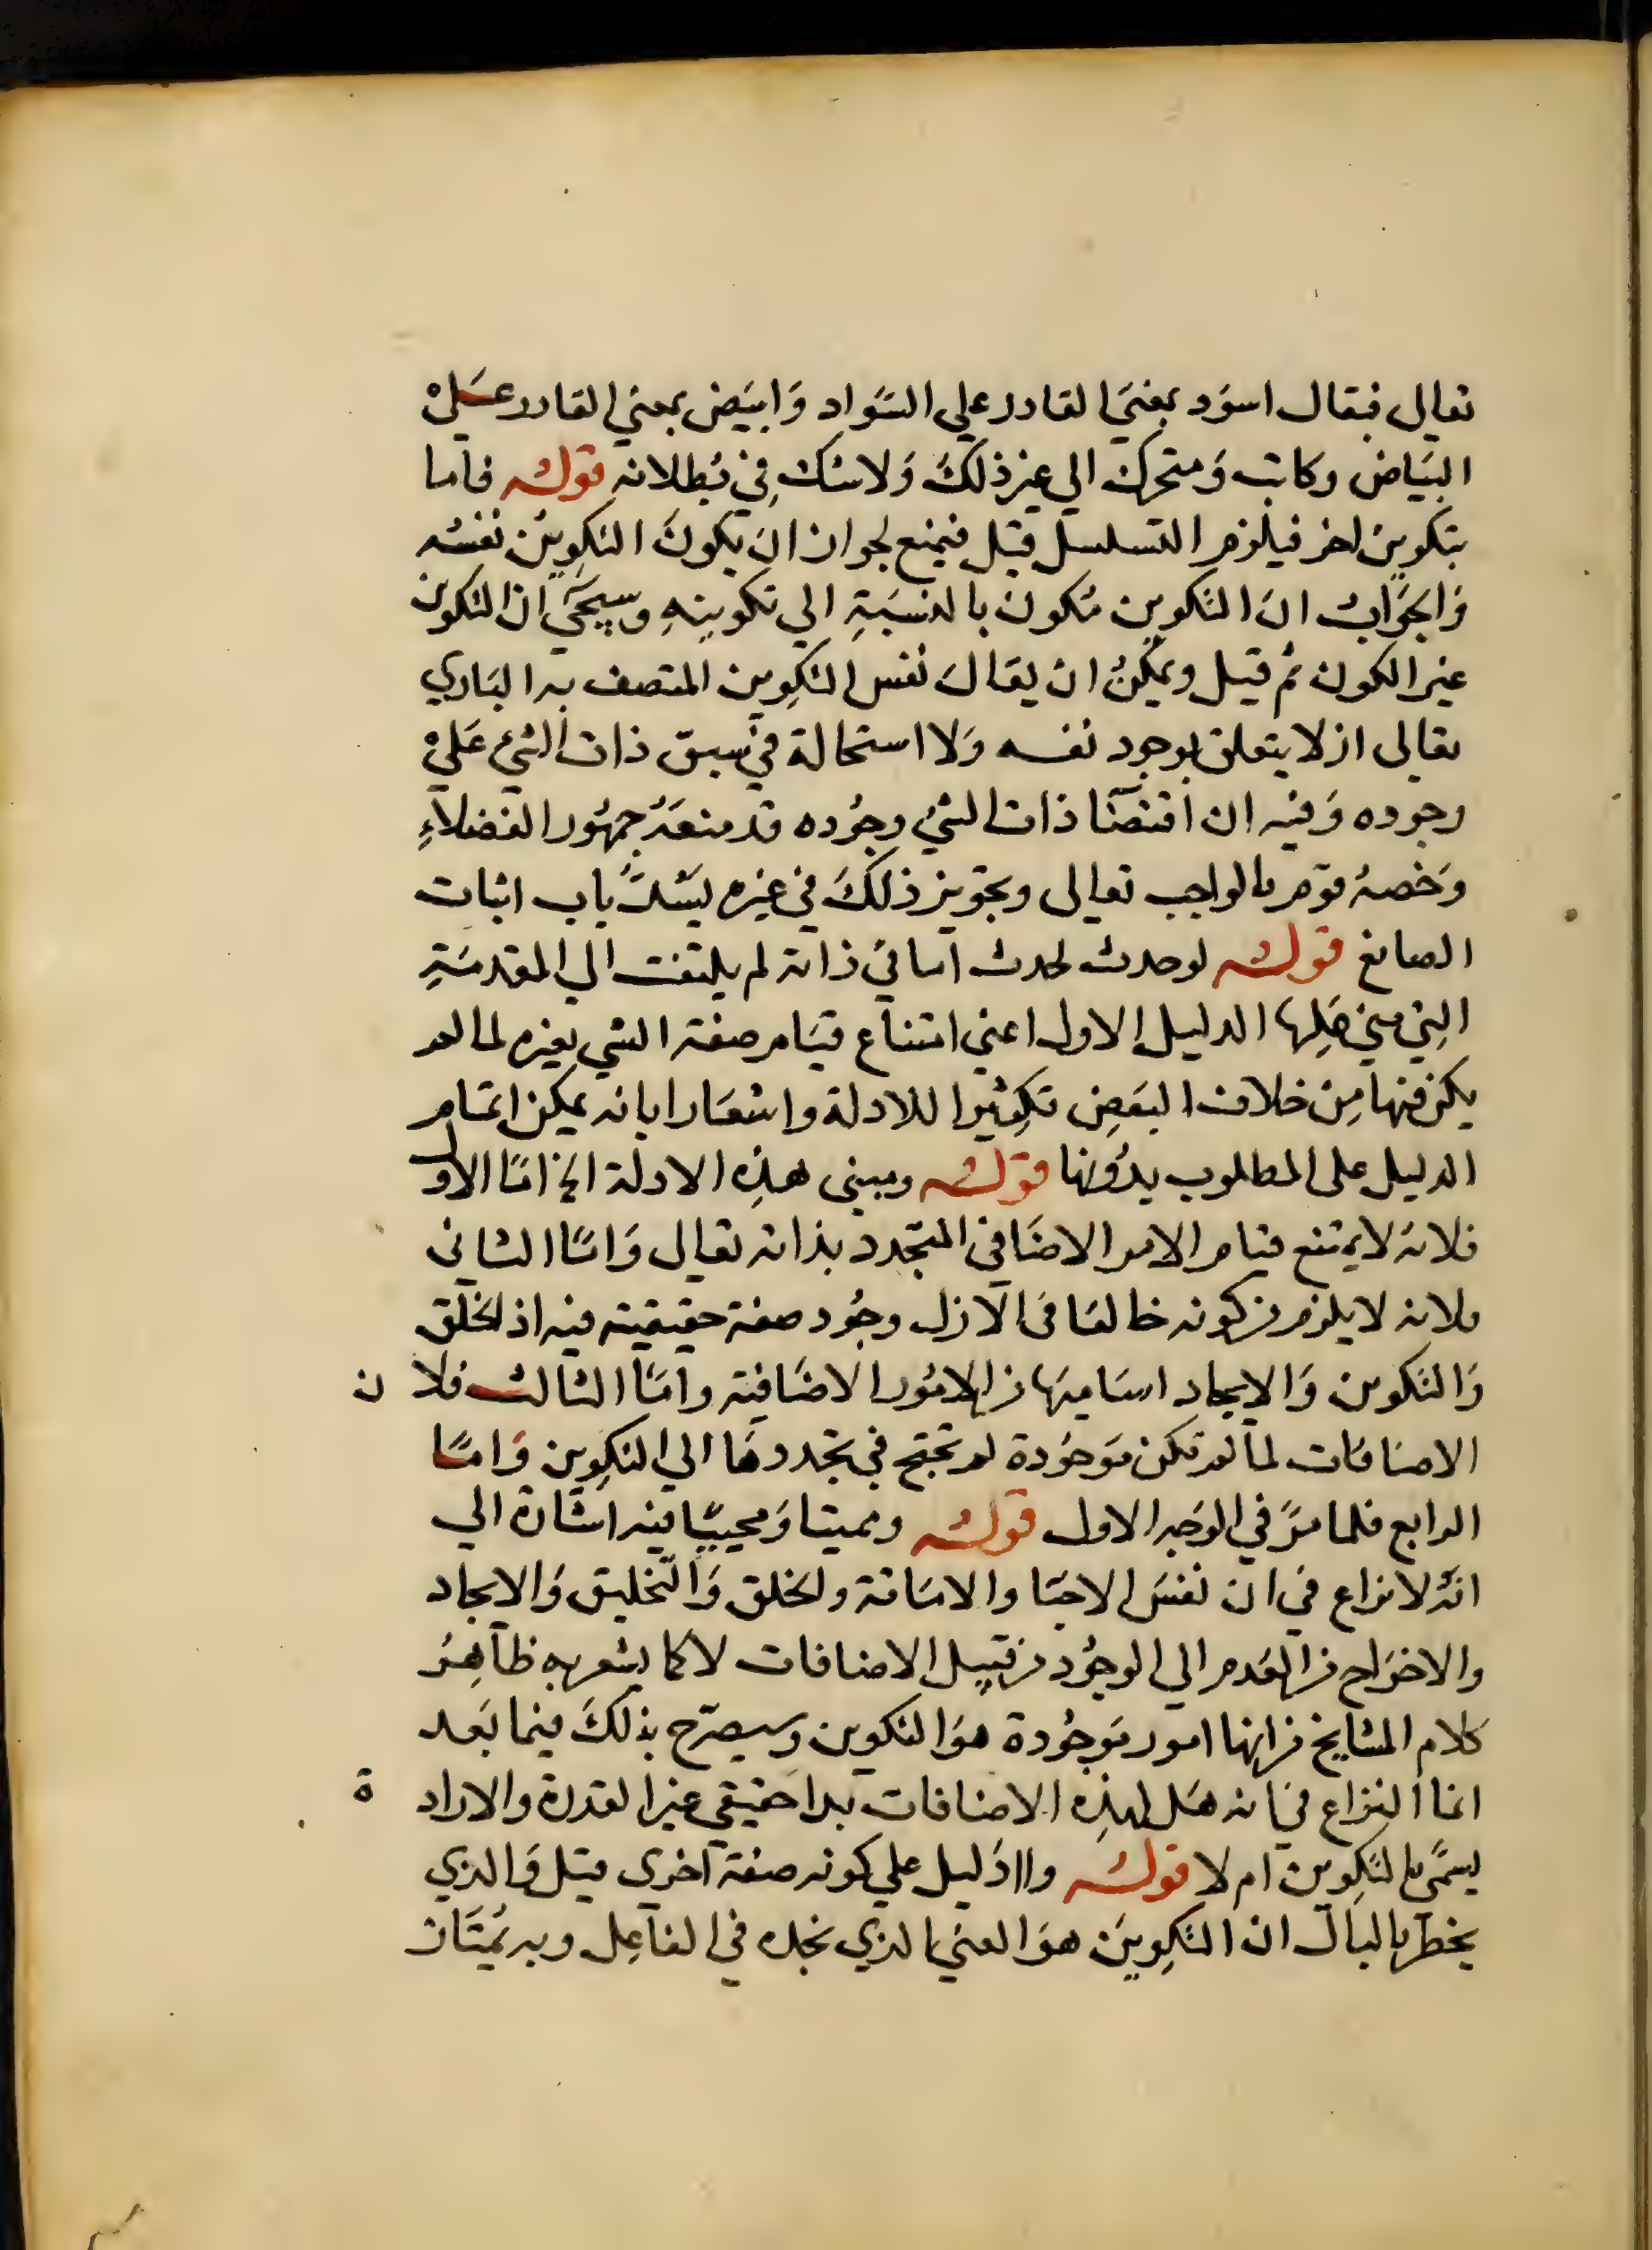 تعالى فيقال اسوَد بمعنَي القادر علي السَّوادِ وَابيَض بمعني القادر عَسَليْ
البيَاض وكاتب وَمتحرك الي غير ذلكَ وَلاشك فِي بُطلانه قولــه فاما
بتكوين اخر فيلزم التسلسل قيل فيمنع لجواز ان يكونَ التكوِين نفسُه
وَالجَوَاب ان التكوين مُكون بالنسبَةِ الي تكوينهِ وسيَجَيُ ان التكون
غير الكون ثم قيل ويمكنُ ان يقالَ نفس التكوِين المتصف به البَاري
تعالى ازلا يتعلق بوجود نفسه وَلا استحالة في سبق ذات الشي عَليْ
وجوده وَفيه ان اقتضَآ ذات الشي وجُوده قد منعَهُ جمهُور الفضلاَءِ
وَخصهُ قوم بالواجب تعالى وبجويز ذلكَ في غيره يسَدُّ باب اثبات
الصانع قولــه لوحدث لحدث اما في ذاته لم يلتفت الي المقدمَةِ
التِي مبني عَلِها الدليل الاول اعني امتناع قيَام صفة الشي بغيره لما لم
يكن فيها مِن خلاف البَعَضِ تكِثيرا للادلة واشعَارا بانه يمكن اتمَام
الدليل على المطلوب بدُونها قولــه ومبنى هذِه الادلة الخ امّا الاول
فلانهَ لا يمتنع قيام الامر الاضَافي المتجَدد بذاته تعالى وَامّا الثاني
فلانه لا يلزم من كونه خالقا في الازل وجُود صفة حقيقية فيه اذ الخَلق
وَالتكوين وَالايجاد اسَاميهَا من الامُور الاضَافية وامّا الثالث فلا ن
الاضافات لما لم تكن مَوجُودة لم تحتج في تجددها الي التكوِين وَامّا
الرابع فلما مرَّ في الوَجه الاول قولــه ومميتا وَمحييًا فيه اشَارة الي
انهَ لا نزاع في ان نفسَ الاحيَا والامَاتة والخلق وَالتخليق وَالايجاد
والاخرَاج من العَدم الي الوجُود من قبيل الاضافات لا كما يشعر به ظاَهِرُ
كلام المشايخ من انها امور مَوجُودة هوَ التكوين وسيصَرّح بذلكَ فيما بَعد
انما النزاع في انه هَل لهذِه الاضافات بدا حقيقي غير القدرة والاراد ة
يسمَّى بالتكوِين ام لا قولــه والادَليل علي كونه صفة اخرى قيل وَالذي
يخطر بالبال ان التكوِينَ هوَ المعنيَ الذي نجده في الفاعِل وبه يُمتَاز